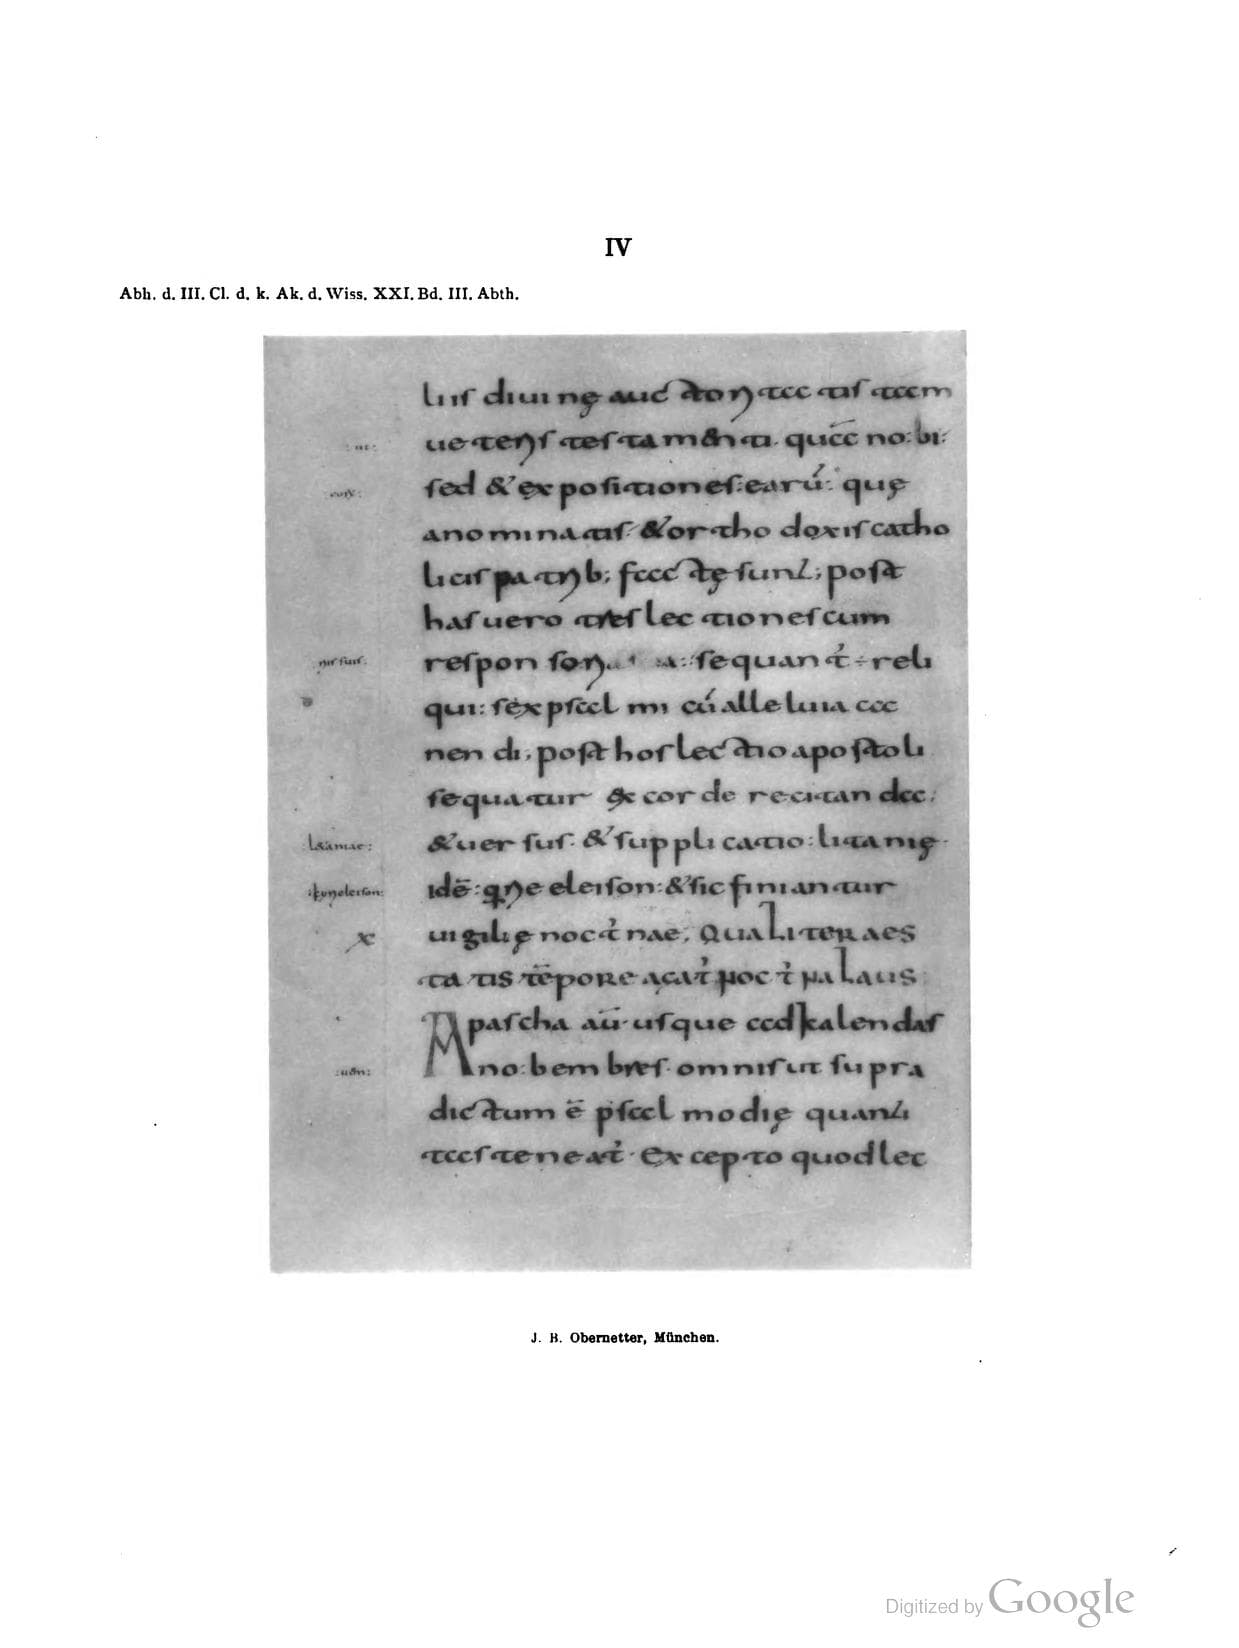 IV
Abh. d. III. Cl. d. k. Ak. d. Wiss. XXI. Bd. III. Abth.
liis diuinę auctoritatis tam
ueteris testamenti. quā no:bi:
sed & expositiones: earū: quę
anominatis & orthodoxis catho
licis patrib; factę sunt; post
has uero tres lectiones cum
responsori a: sequant̾ ÷ reli
qui: sex psalmi cū alleluia ca
nendi; post hos lectio apostoli
sequatur ex corde recitanda;
& uersus. & supplicatio: litanię
idē: qrie eleison: & sic finiantur
uigilię noct̾nae; Qualiter aes
tatis tēpore agat̾ noct̾na laus
A pascha aū. usque ad kalendas
no:bembres. omnis ut supra
dictum ē psalmodię quanti
tas teneat̾. Excepto quod lec
nis suis:
letaniae:
:kyrieleison:
:uem:
J. B. Obernetter, München.
Digitized by Google